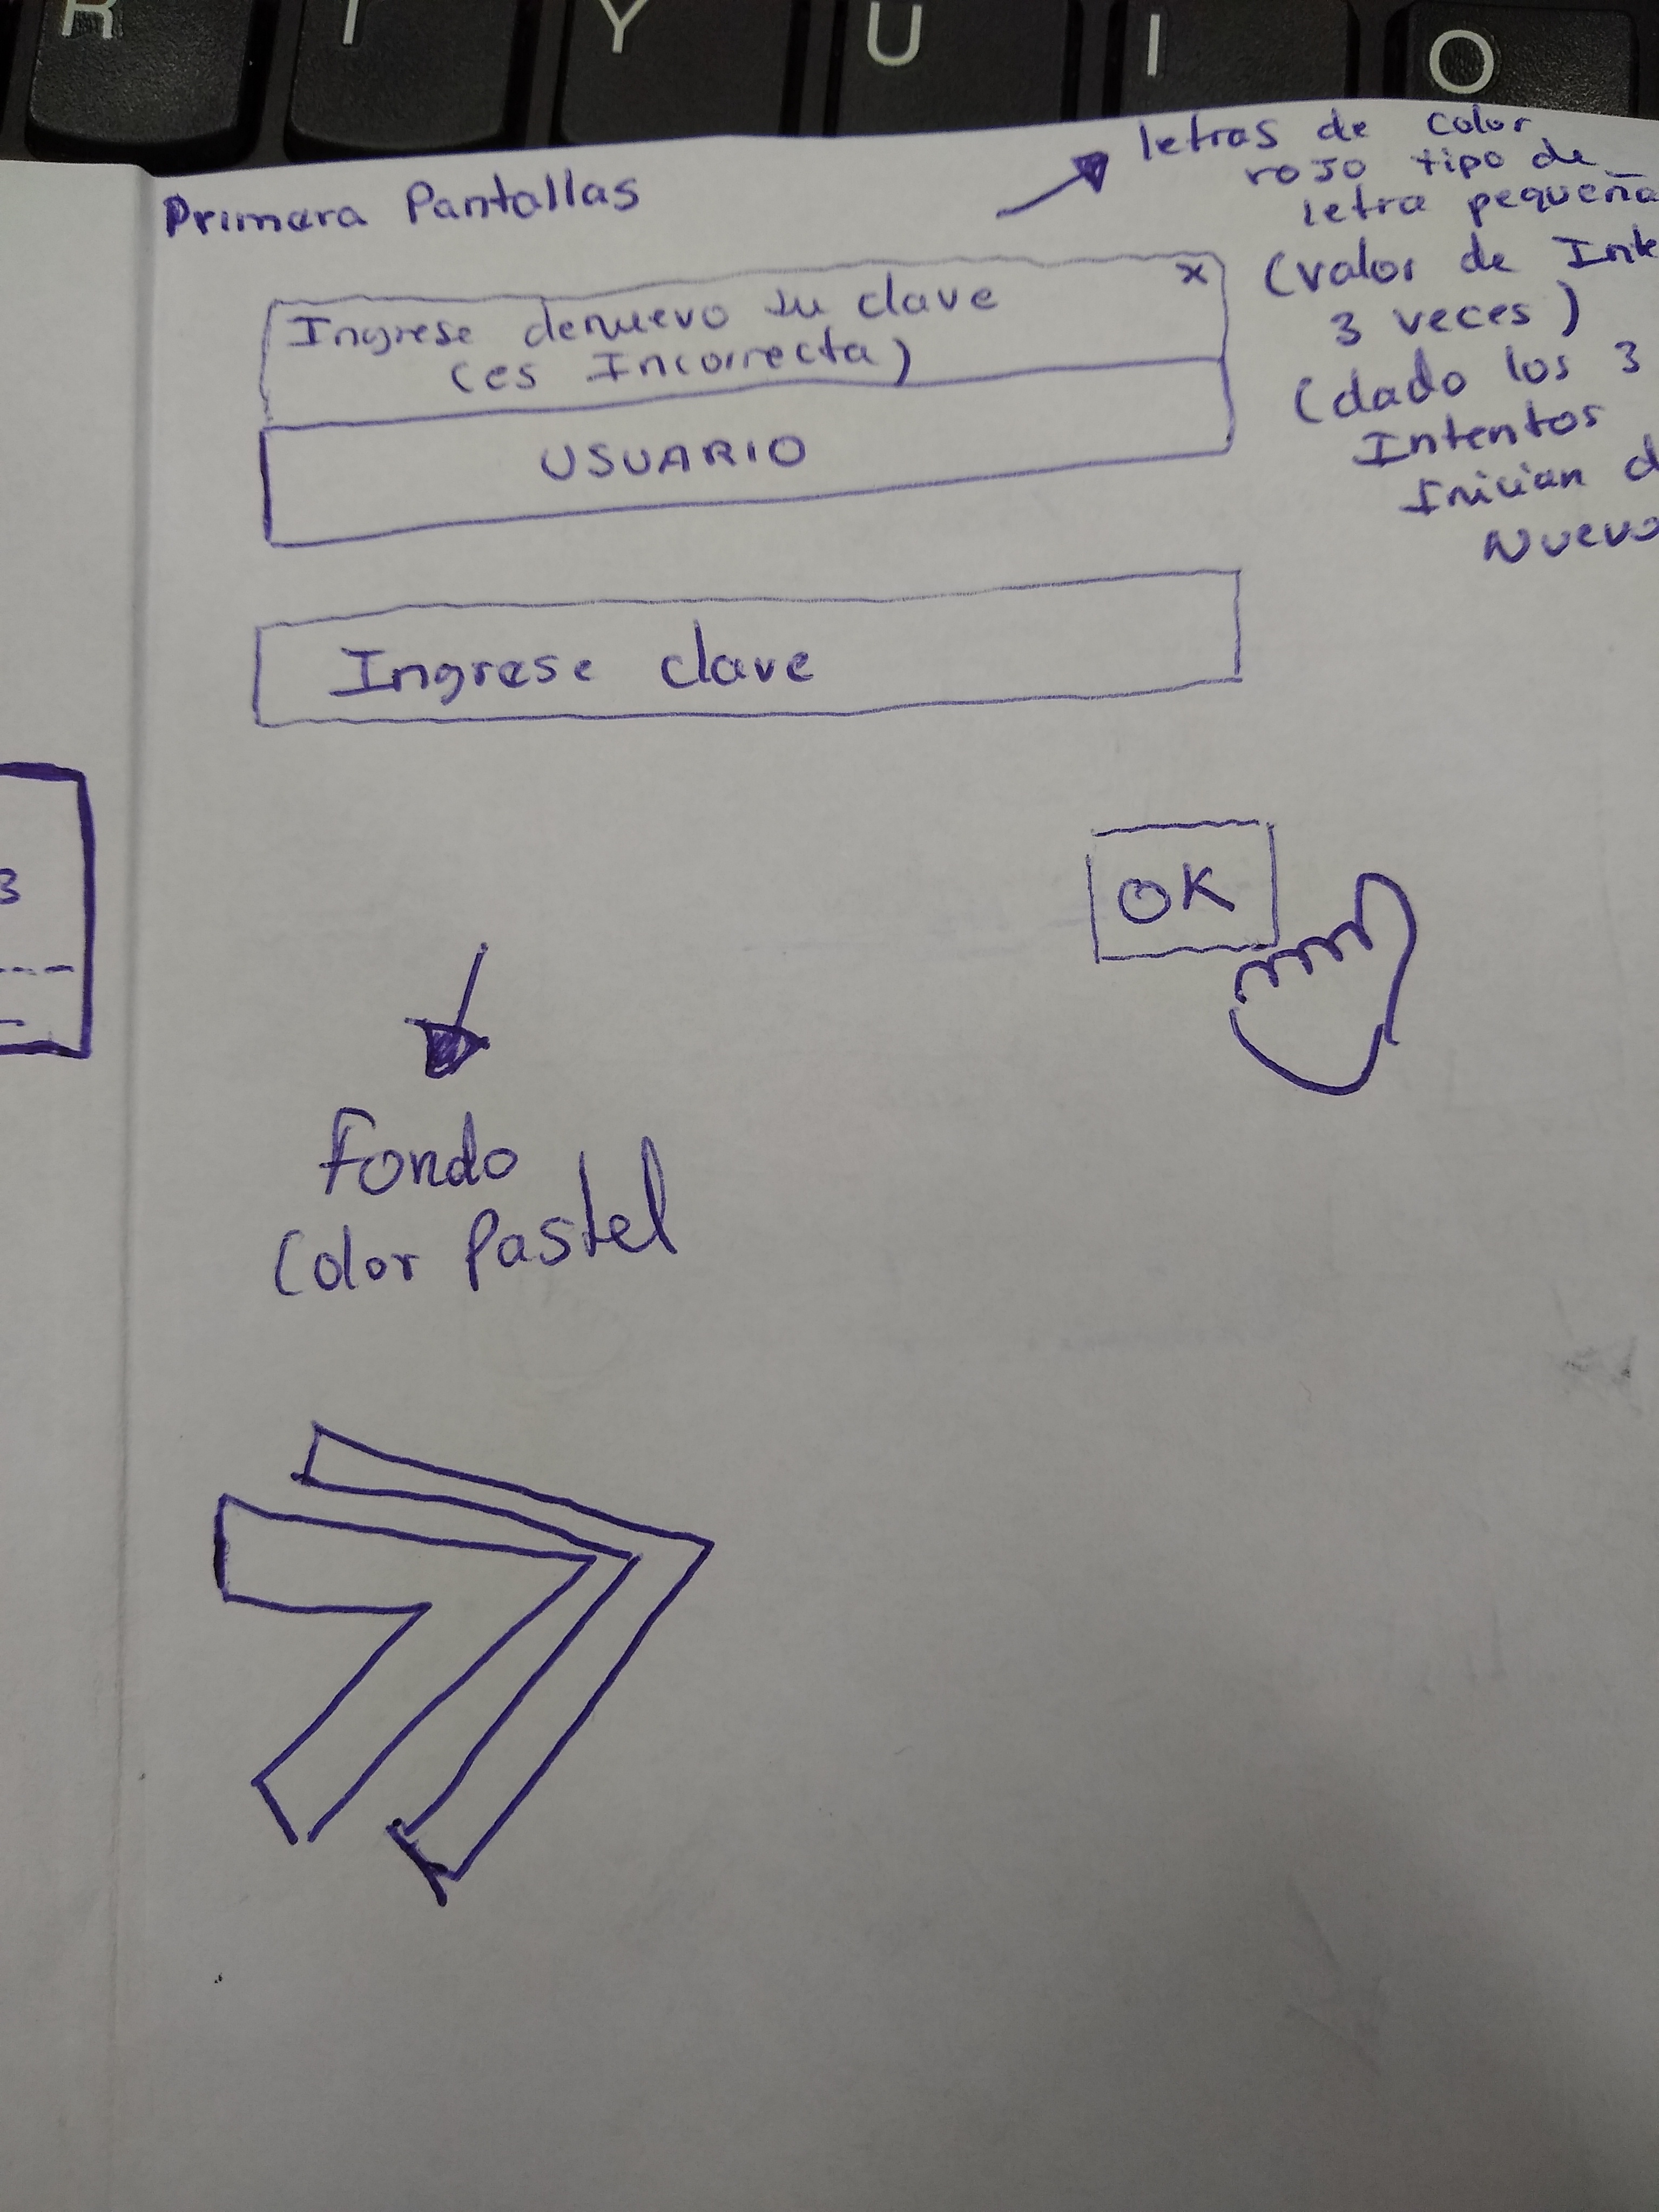 R T Y U I O
Primera Pantallas
letras de color
rojo tipo de
letra pequeña
(valor de
3 veces)
(dado los 3
Intentos
Inician
Nuevo
Ingrese denuevo su clave x
(es Incorrecta)
USUARIO
Ingrese clave
3
OK
Fondo
Color Pastel